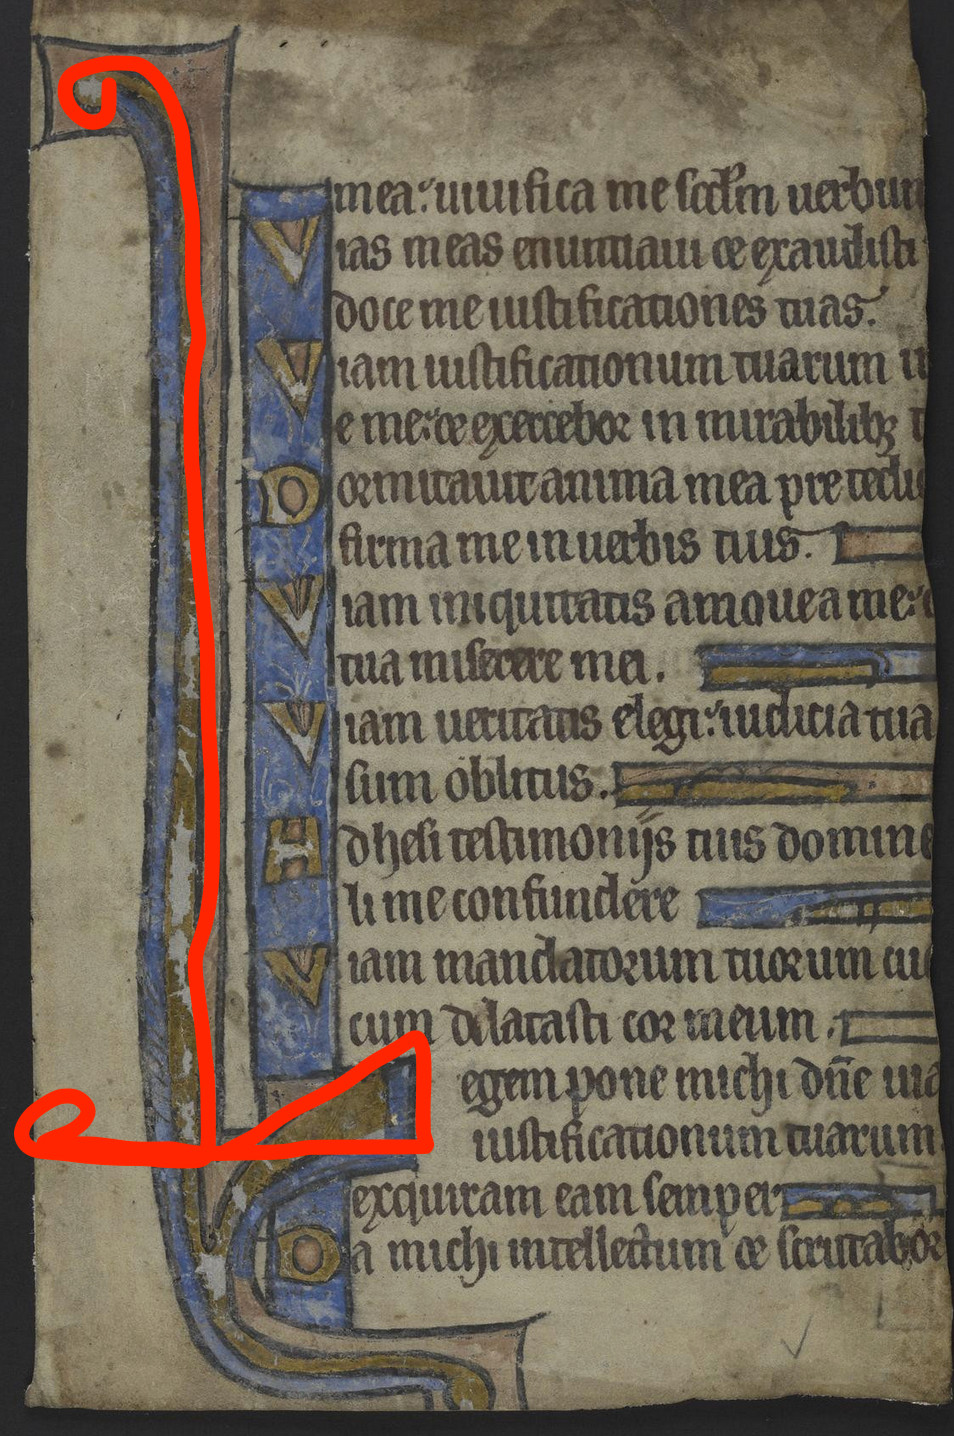 mea: uiuifica me scdm uerbum
Vias meas enuntiaui et exaudisti
doce me iustificationes tuas.
Viam iustificationum tuarum in
e me: et exercebor in mirabilibꝫ t
Dormitauit anima mea pre tediu
firma me in uerbis tuis.
Viam iniquitatis amoue a me: et
tua miserere mei.
Viam ueritatis elegi: iudicia tua
sum oblitus.
Adhesi testimonijs tuis domine
li me confundere
Viam mandatorum tuorum cuc
cum dilatasti cor meum.
Legem pone michi dn̄e uia
iustificationum tuarum
exquiram eam semper
Da michi intellectum et scrutabor